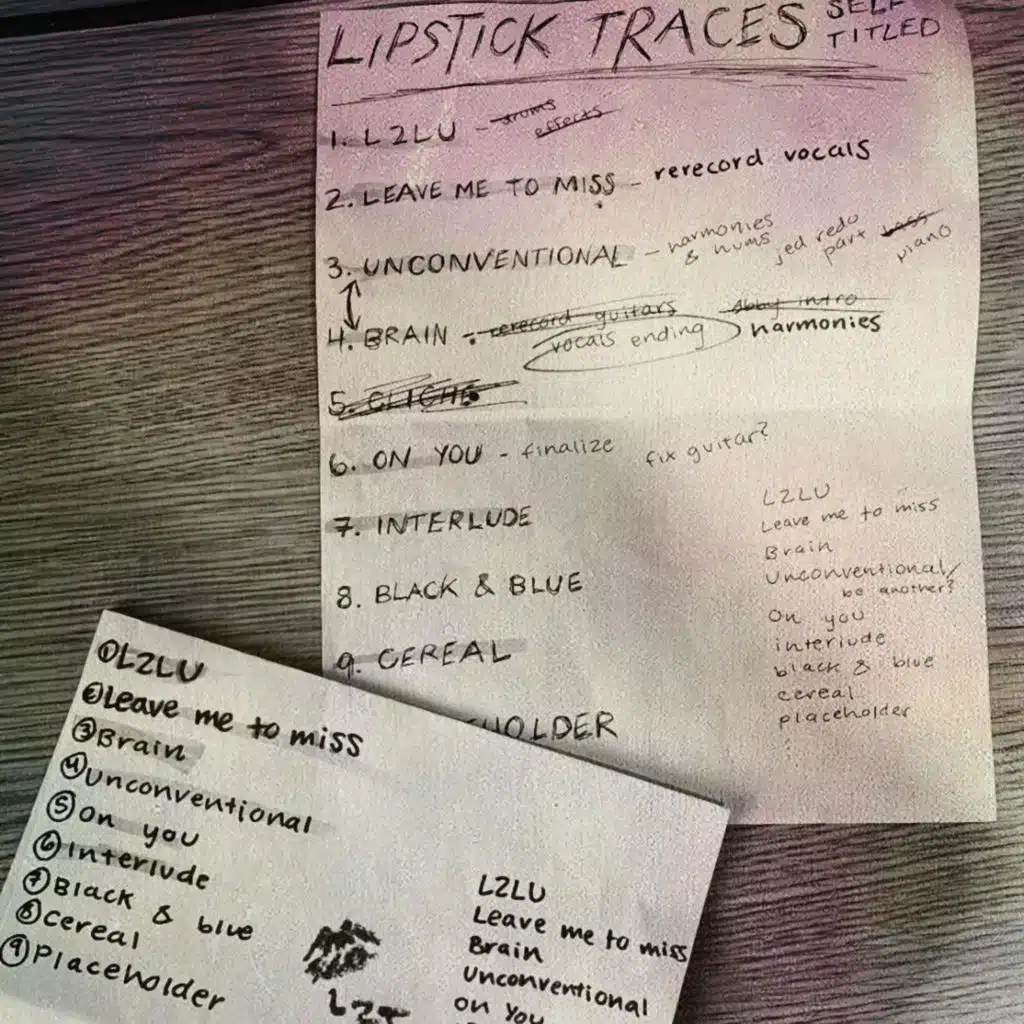 LIPSTICK TRACES SELF TITLED
1. L2LU - drums effects
2. LEAVE ME TO MISS - rerecord vocals
3. UNCONVENTIONAL - harmonies & hums jed redo part bass piano
4. BRAIN - rerecord guitars abby intro
vocals ending harmonies
5. CLICHE
6. ON YOU - finalize fix guitar?
7. INTERLUDE
8. BLACK & BLUE
9. CEREAL
HOLDER
L2LU
Leave me to miss
Brain
Unconventional/
be another?
On you
interlude
black & blue
cereal
placeholder
① L2LU
② Leave me to miss
③ Brain
④ Unconventional
⑤ On you
⑥ Interlude
⑦ Black & blue
⑧ Cereal
⑨ Placeholder
L2LU
Leave me to miss
Brain
Unconventional
on you